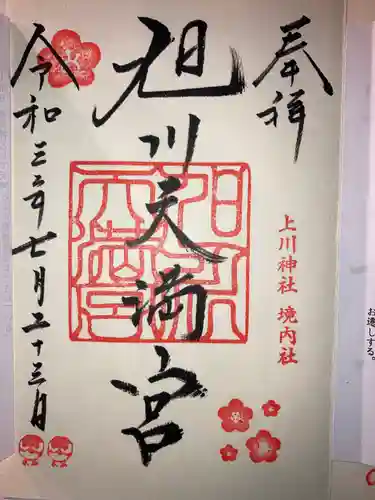 奉拝
上川神社 境内社
旭川天満宮
令和三年七月二十三日
お遷しする。